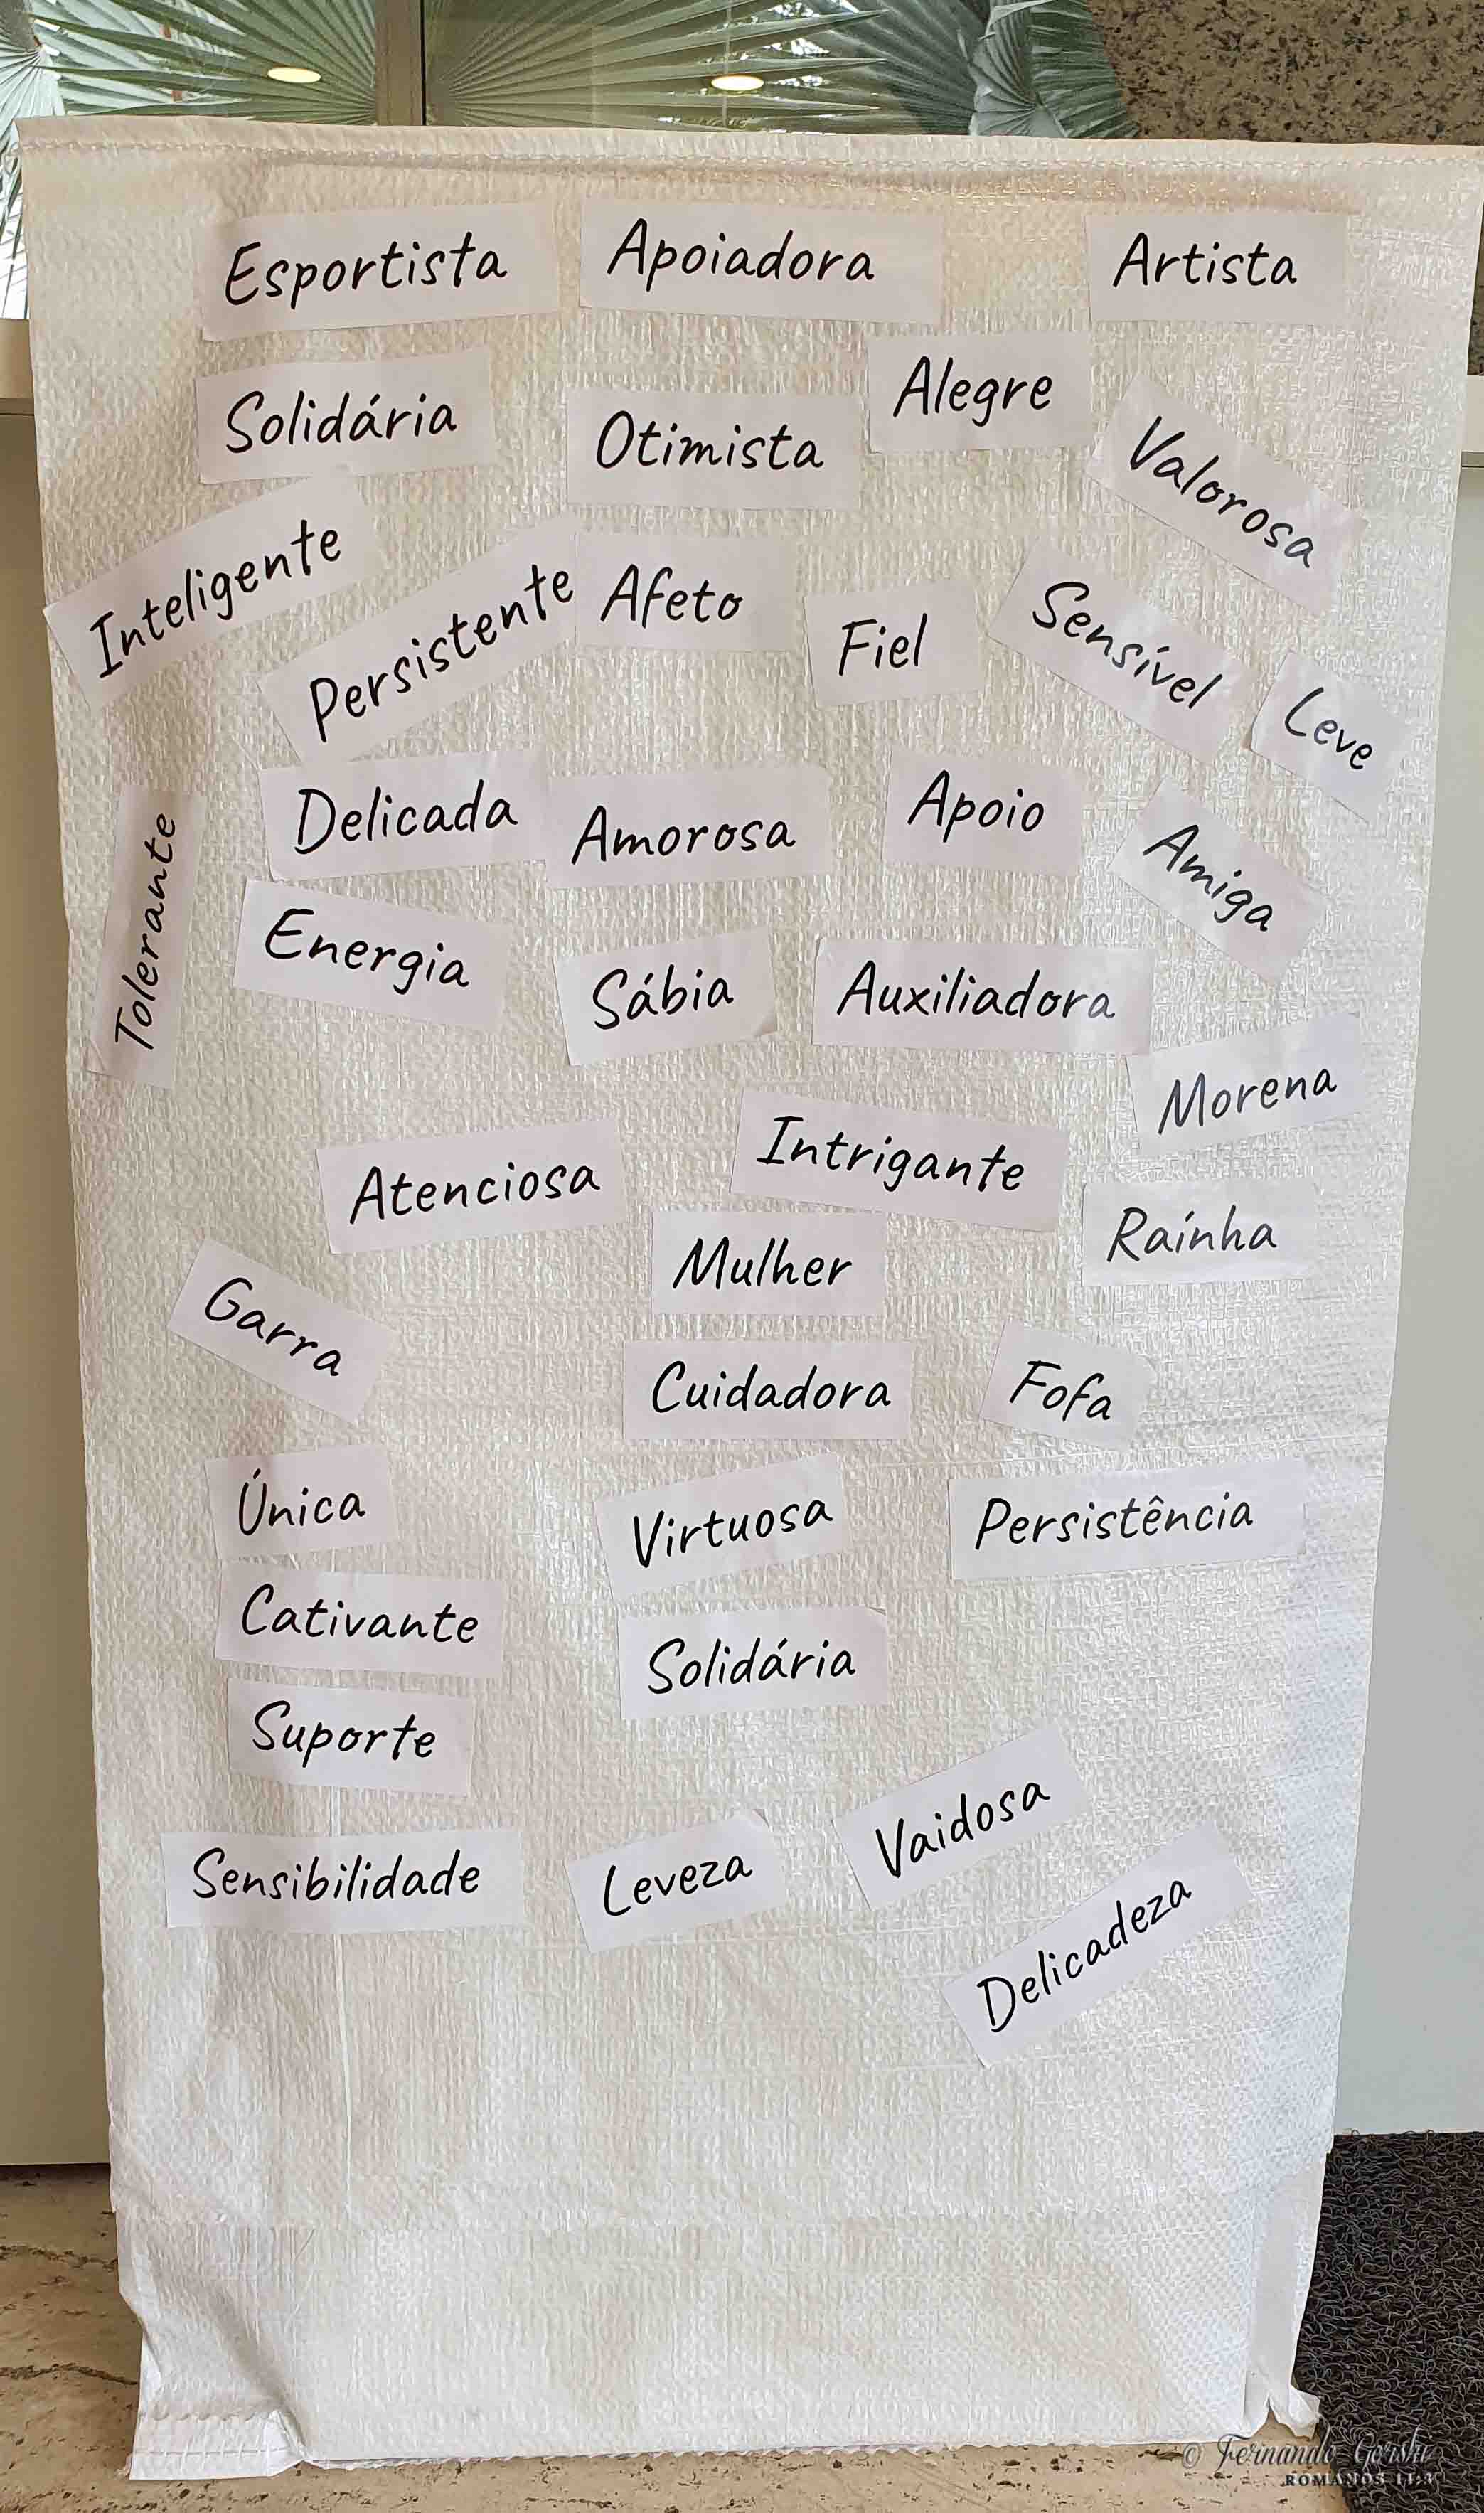 Esportista
Apoiadora
Artista
Solidária
Otimista
Alegre
Valorosa
Inteligente
Persistente
Afeto
Fiel
Sensível
Leve
Tolerante
Delicada
Amorosa
Apoio
Amiga
Energia
Sábia
Auxiliadora
Morena
Atenciosa
Intrigante
Raínha
Mulher
Garra
Cuidadora
Fofa
Única
Virtuosa
Persistência
Cativante
Solidária
Suporte
Vaidosa
Sensibilidade
Leveza
Delicadeza
© Fernando Gorski
ROMANOS 11:3